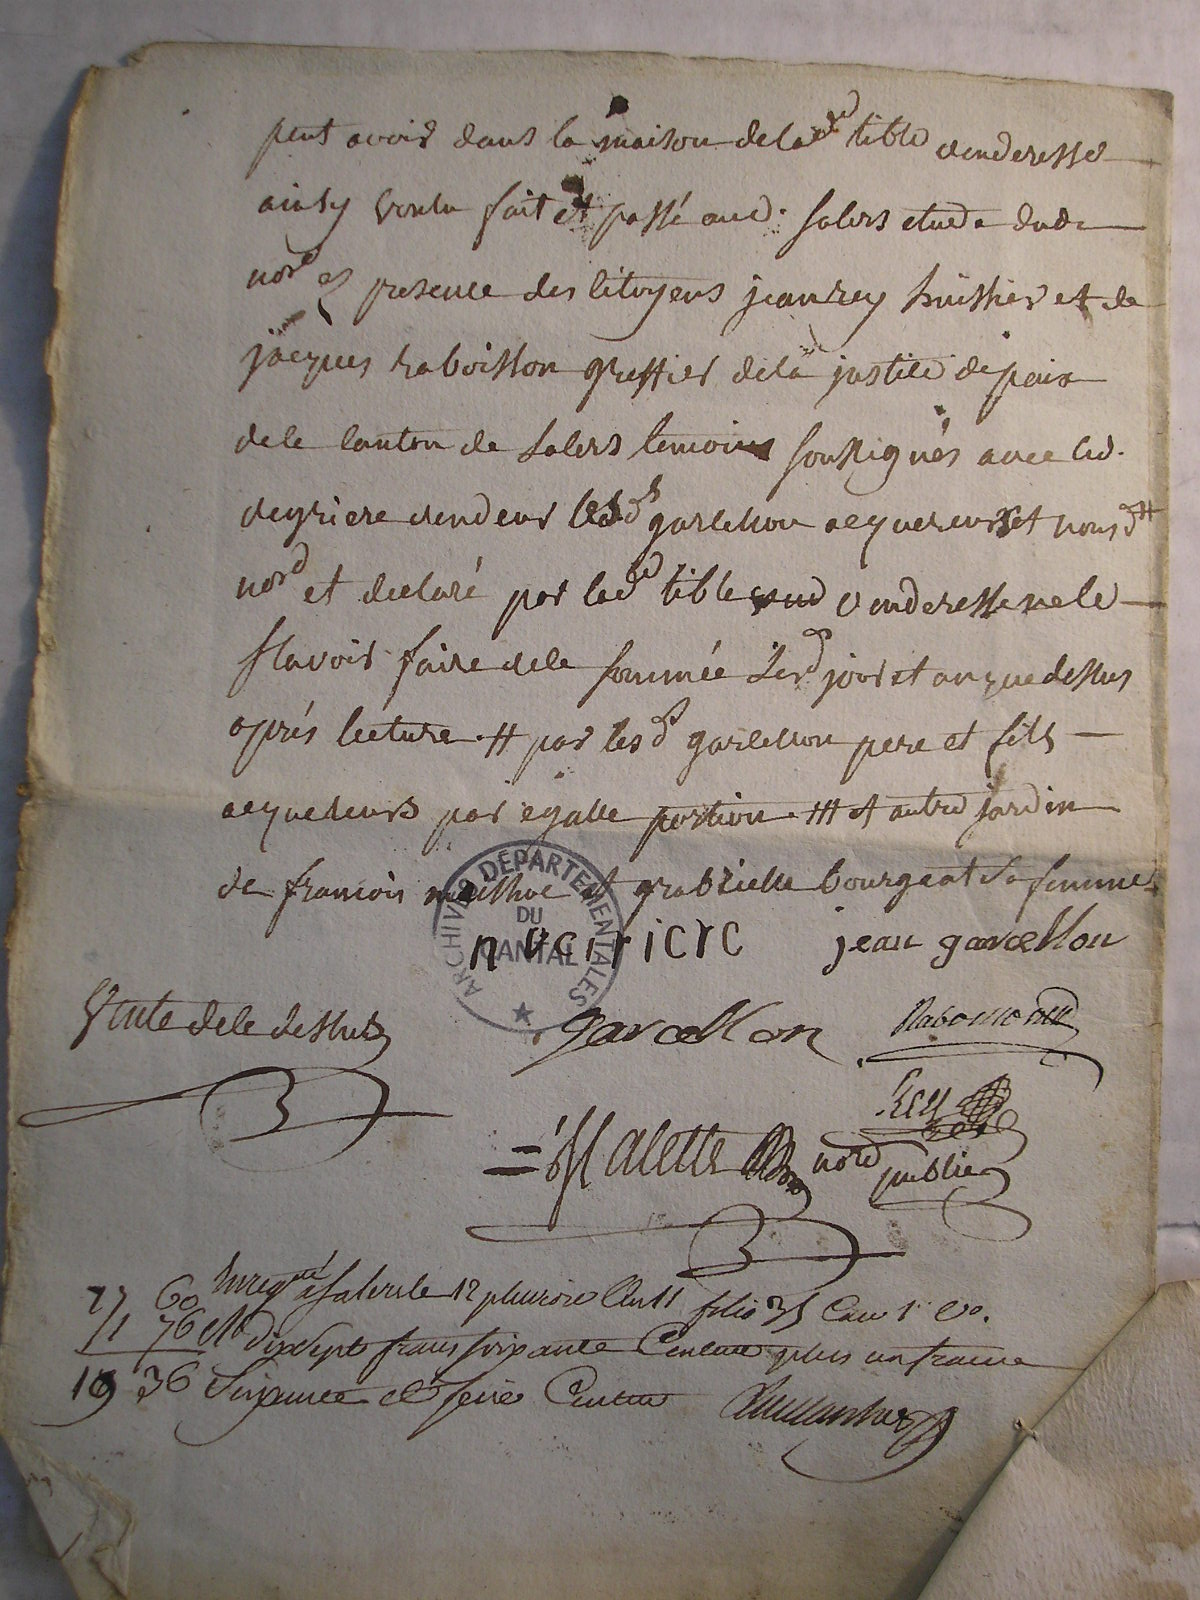 peut avoir dans la maison de lad tible venderesse
ainsy voulu fait et passé aud. salers etude dud
nore en presence des Citoyens jean rey huissier et de
jacques raboisson greffier de la justice de paix
dele canton de salers temoins soussignés avec led.
veyriere vendeur lesds garcellon acquereurs et nous d #
nore et declaré par lad tible venderesse ne le
scavoir faire dele sommée lesd jour et an que dessus
aprés lecture # par lesds garcellon pere et fils
acquereurs par egalle portion ## et autre jardin
de francois et grabrielle bourgeat sa femme
jean garcellon
Vente dele dessus
garcellon
Raboisson
Rey
nore public
17 60 Enregtré a salers le 12 pluviose an 11 folio 35 Case 1 vo.
1 76 dix sept francs soixante Centimes plus un franc
19 36 Soixante et seize Centimes
ARCHIVES DÉPARTEMENTALES
DU
CANTAL